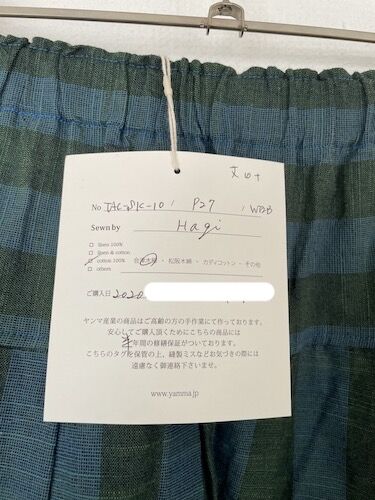 丈 64
No IAC-SIC-10 / P27 / WEB
Sewn by Hagi
linen 100%
linen & cotton
cotton 100% 会津木綿 ・ 松阪木綿 ・ カディコットン ・ その他
others
ご購入日 2020
ヤンマ産業の商品はご高齢の方の手作業にて作っております。
安心してご購入頂くためにこちらの商品には
半年間の修繕保証がついております。
こちらのタグを保管の上、縫製ミスなどお気づきの際には
遠慮なく御連絡下さいませ。
www.yamma.jp